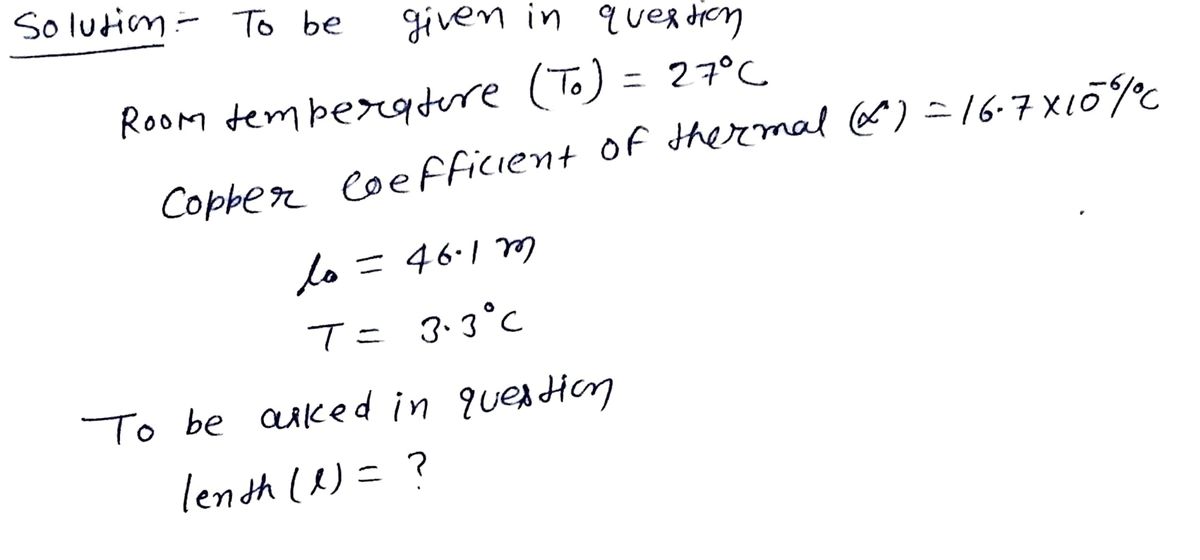 Solution :- To be given in question
Room temperature (T₀) = 27°C
Copper coefficient of thermal (α) = 16.7 × 10⁻⁶/°C
l₀ = 46.1 m
T = 3.3°C
To be asked in question
lenth (l) = ?